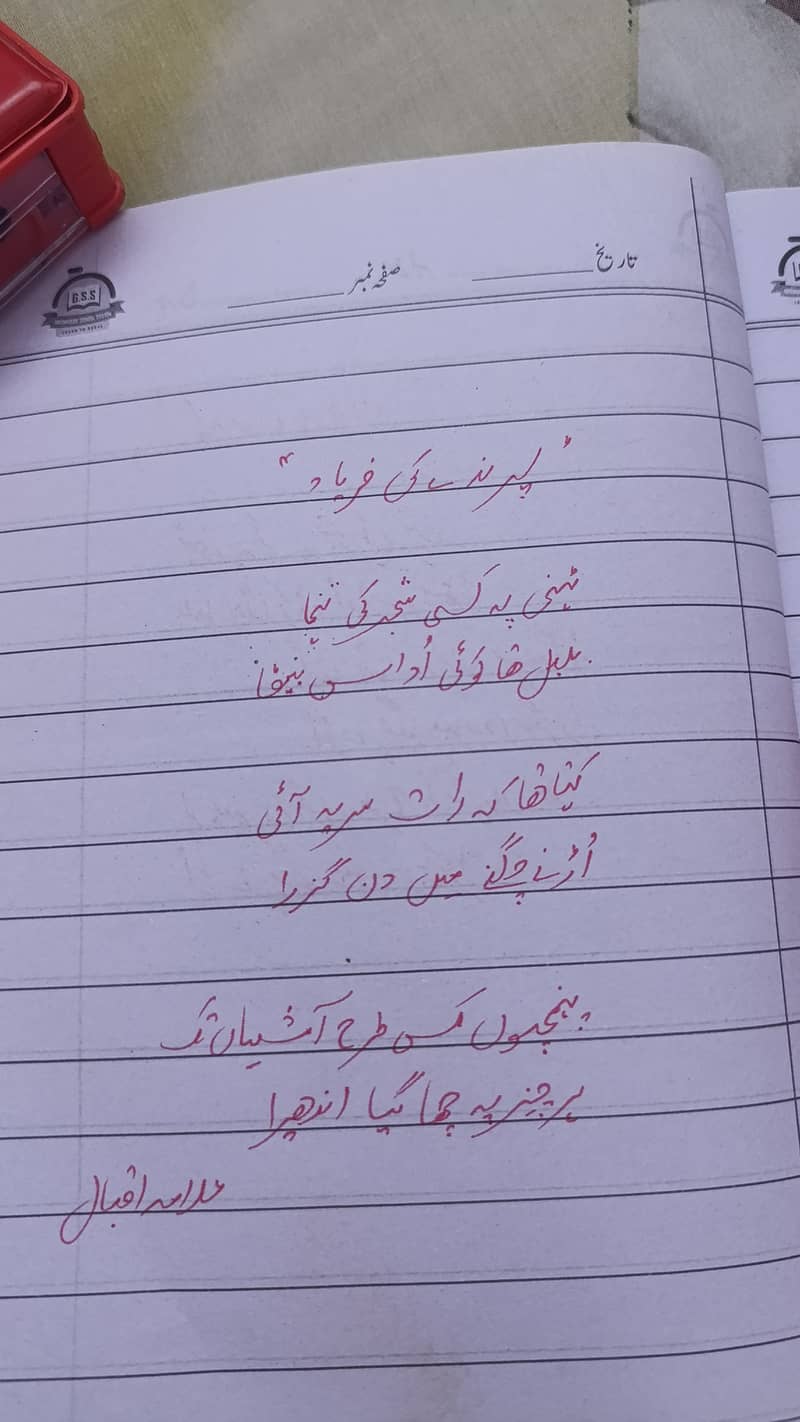 تاریخ ________ صفحہ نمبر ________
G.S.S
"پرندے کی فریاد"
ٹہنی پہ کسی شجر کی تنہا
بلبل تھا کوئی اُداس بیٹھا
کہتا تھا کہ رات سر پہ آئی
اُڑنے چگنے میں دن گزرا
پہنچوں کس طرح آشیاں تک
ہر چیز پہ چھا گیا اندھیرا
علامہ اقبال